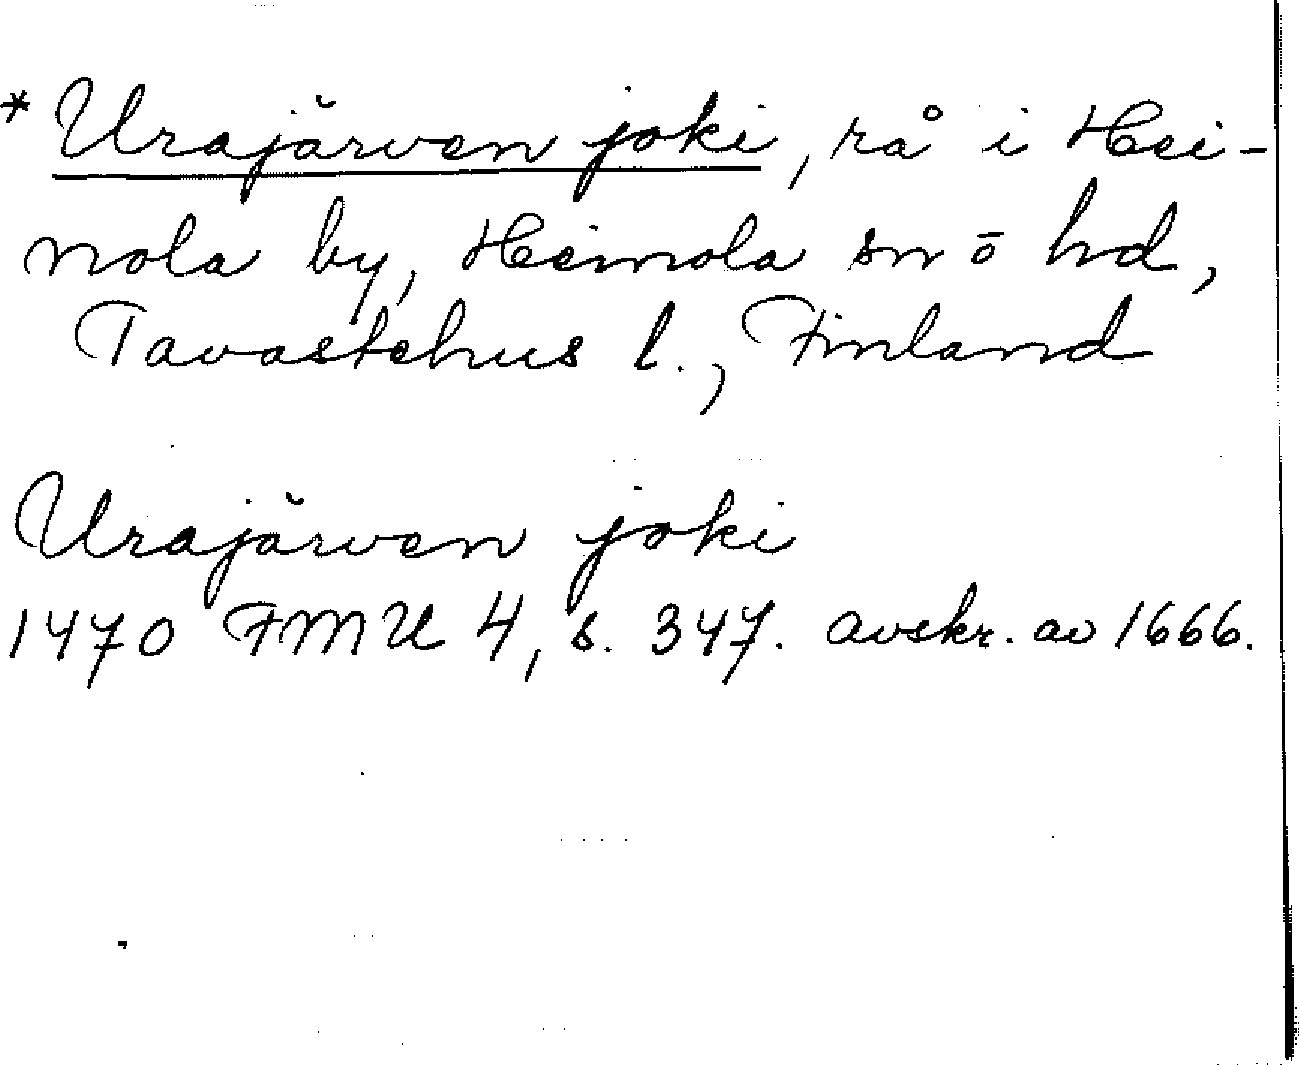 * Urajärven joki, rå i Hei-
nola by, Heinola sn ō hd,
Tavastehus l., Finland
Urajärven joki
1470 FMU 4, s. 347. avskr. av 1666.